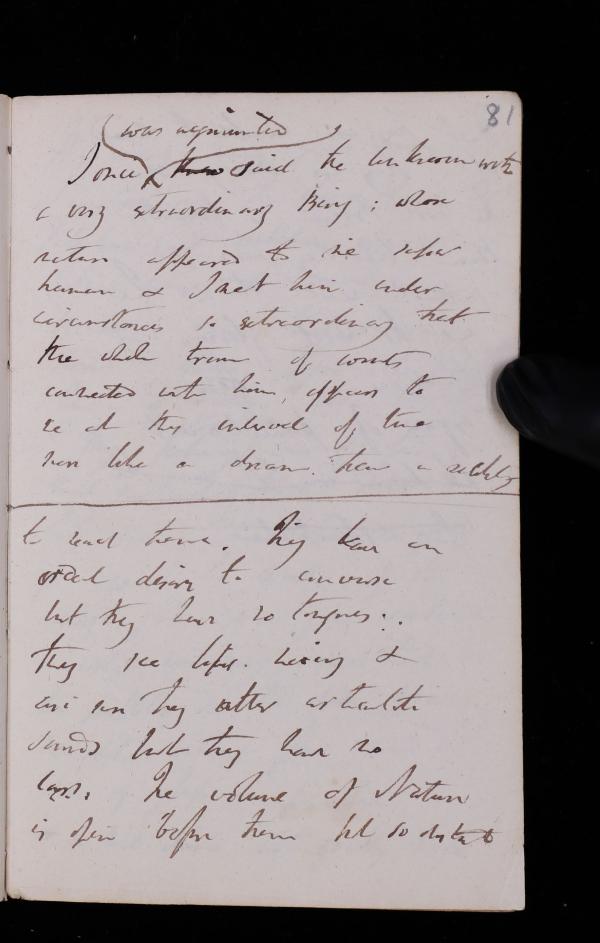 81
was acquainted
I once then said the Unknown with
a very extraordinary Being; whose
nature appeared to me super
human & I met him under
circumstances so extraordinary that
the whole train of events
connected with him, appears to
me at this interval of time
more like a dream. than a reality
to read them. They have an
desire to converse
but they have no tongues.
they see lips moving &
they utter articulate
sounds but they have no
ears. The volume of Nature
is open before them but so distant